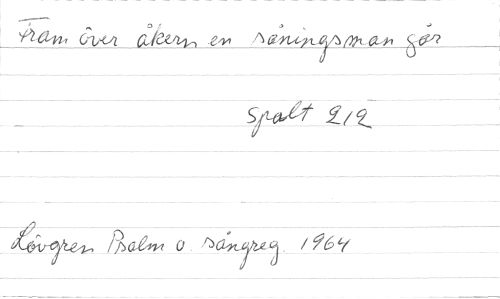 Fram över åkern en såningsman går
Spalt 212
Lövgren Psalm o. sångreg. 1964